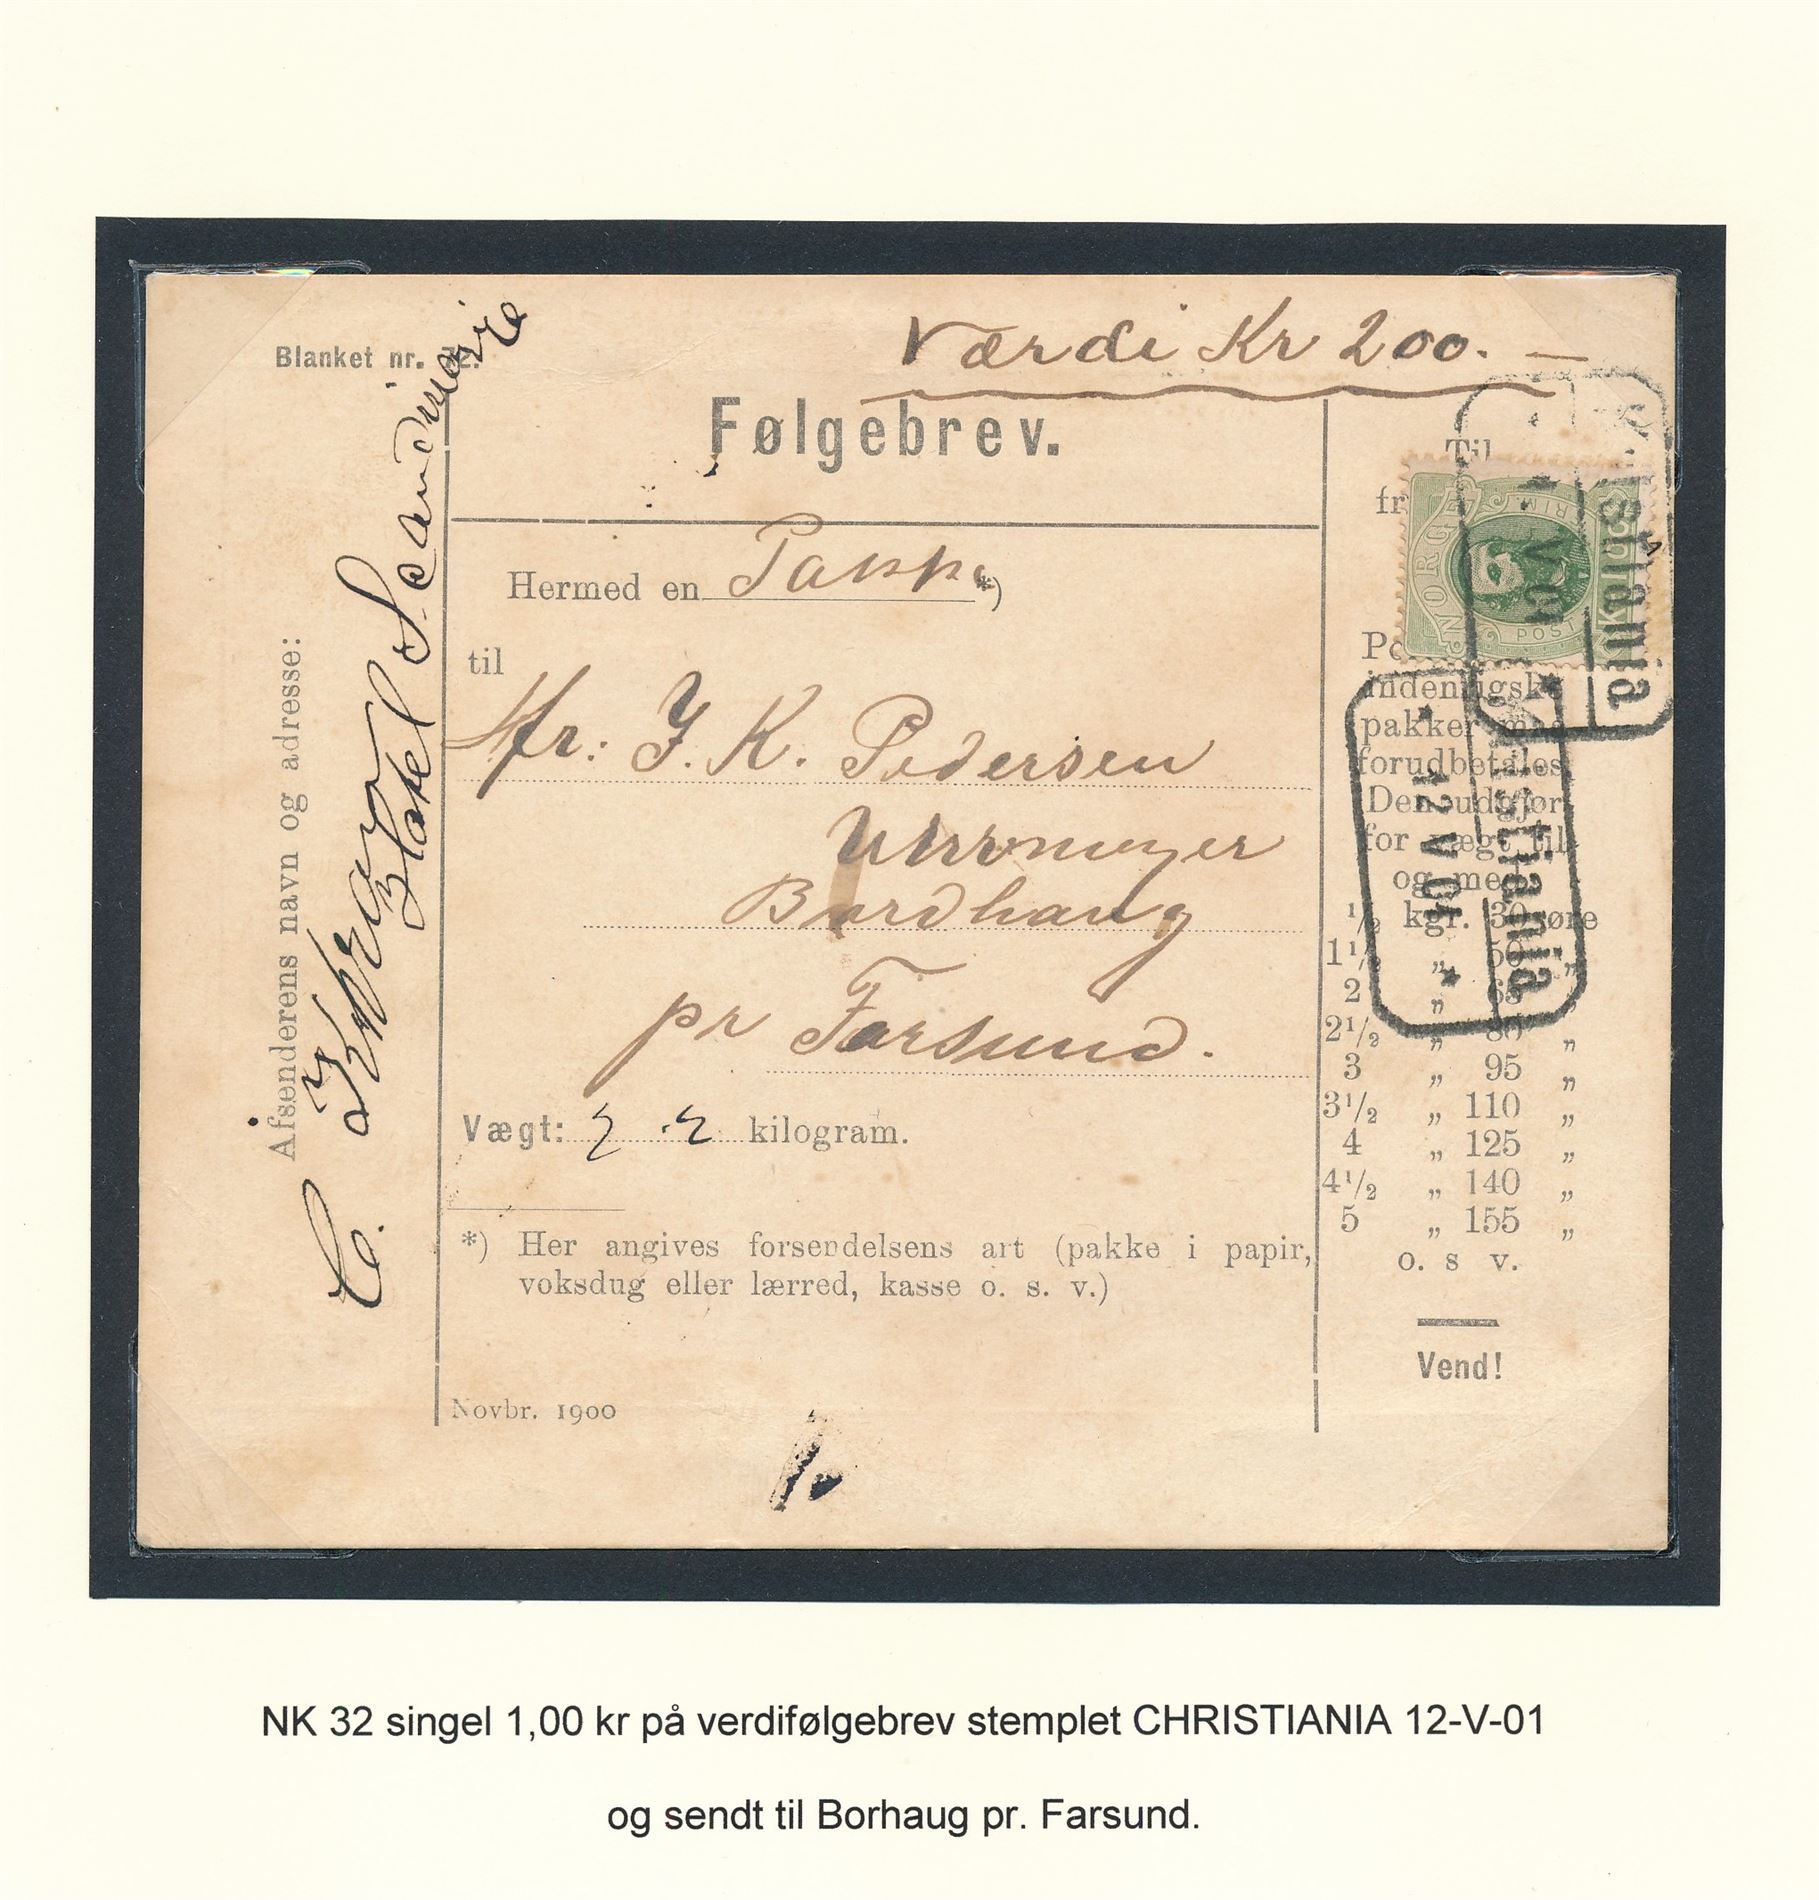 Værdi Kr 200. —
Blanket nr. 72.
Følgebrev.
Hermed en Pakke *)
til
Hr: J. K. Pedersen
Uhrmager
Bordhaug
pr Farsund.
Vægt: 2.2 kilogram.
*) Her angives forsendelsens art (pakke i papir,
voksdug eller lærred, kasse o. s. v.)
Novbr. 1900
1.
Afsenderens navn og adresse:
Hotel Scandinavie
Til
fr
NORGE
POST
Christiania
12 V 01
Christiania
12 V 01
indenrigske
pakker maa
forudbetales
Den udgjør
for vægt til
og med
1/2 kgr. 30 øre
1 1/2 „ 50 „
2 „ 65 „
2 1/2 „ 80 „
3 „ 95 „
3 1/2 „ 110 „
4 „ 125 „
4 1/2 „ 140 „
5 „ 155 „
o. s v.
Vend!
NK 32 singel 1,00 kr på verdifølgebrev stemplet CHRISTIANIA 12-V-01
og sendt til Borhaug pr. Farsund.